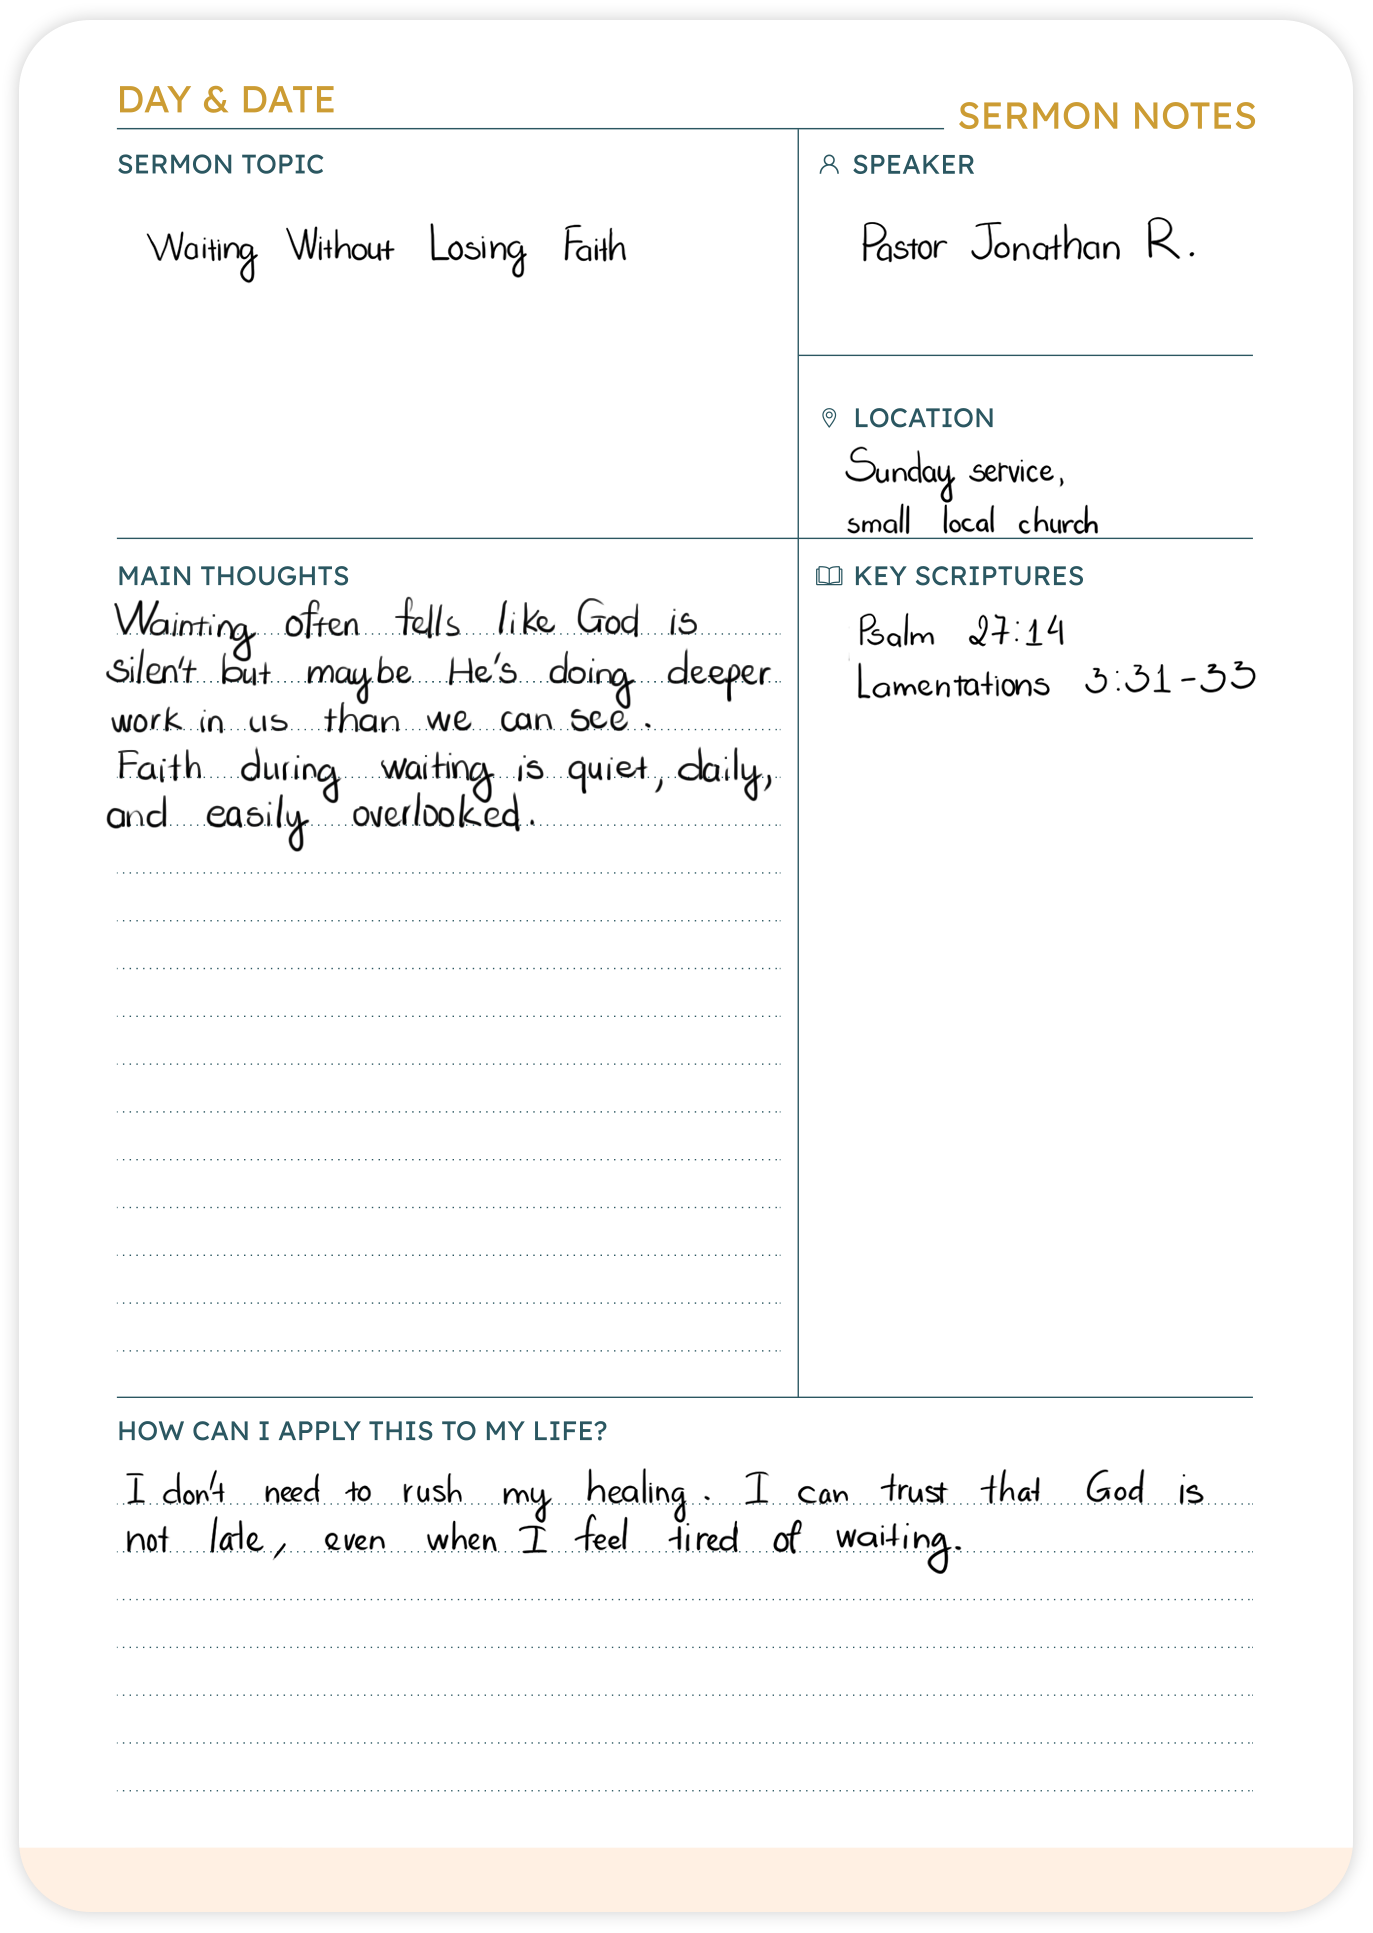 DAY & DATE
SERMON NOTES
SERMON TOPIC
Waiting Without Losing Faith
SPEAKER
Pastor Jonathan R.
LOCATION
Sunday service,
small local church
MAIN THOUGHTS
Wainting often fells like God is
silen't but maybe He's doing deeper
work in us than we can see.
Faith during waiting is quiet, daily,
and easily overlooked.
KEY SCRIPTURES
Psalm 27:14
Lamentations 3:31-33
HOW CAN I APPLY THIS TO MY LIFE?
I don't need to rush my healing. I can trust that God is
not late, even when I feel tired of waiting.